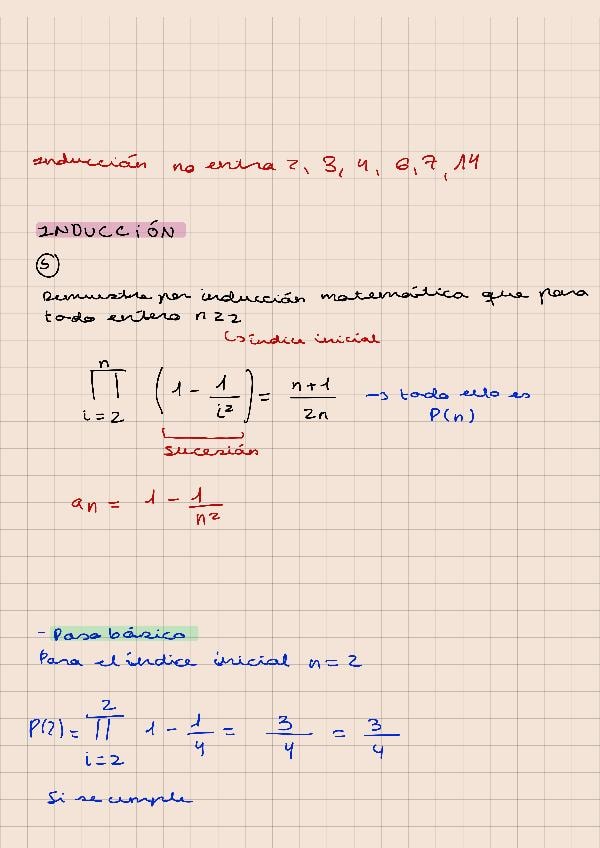 Inducción no entra 2, 3, 4, 6, 7, 14
INDUCCIÓN
5
Demuestra por inducción matemática que para
todo entero n ≥ 2
↳ índice inicial
n
∏ (1 - 1/i²) = n+1/2n → todo esto es
i=2
P(n)
sucesión
aₙ = 1 - 1/n²
- Paso básico
Para el índice inicial n=2
2
P(2) = ∏ 1 - 1/4 = 3/4 = 3/4
i=2
Si se cumple